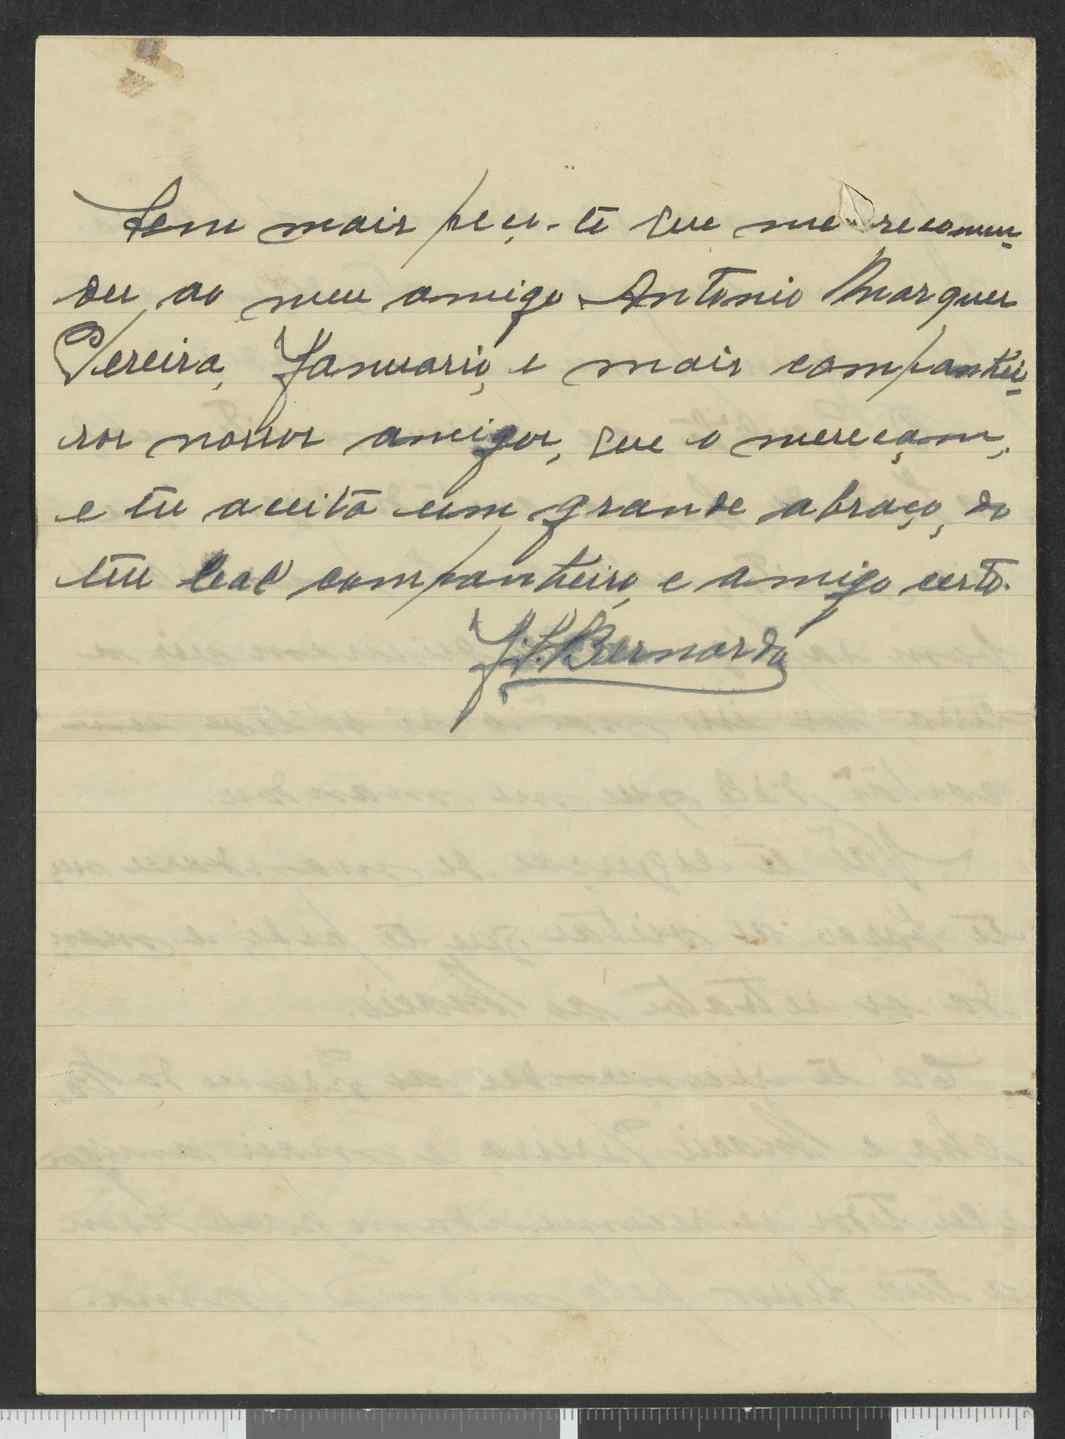 Sem mais peço-te que me recomen-
des ao meu amigo Antonio Marques
Pereira, Januario, e mais companhei-
ros nossos amigos, que o mereçam,
e tu aceita um grande abraço, do
teu leal companheiro, e amigo certo.
J. S. Bernardo